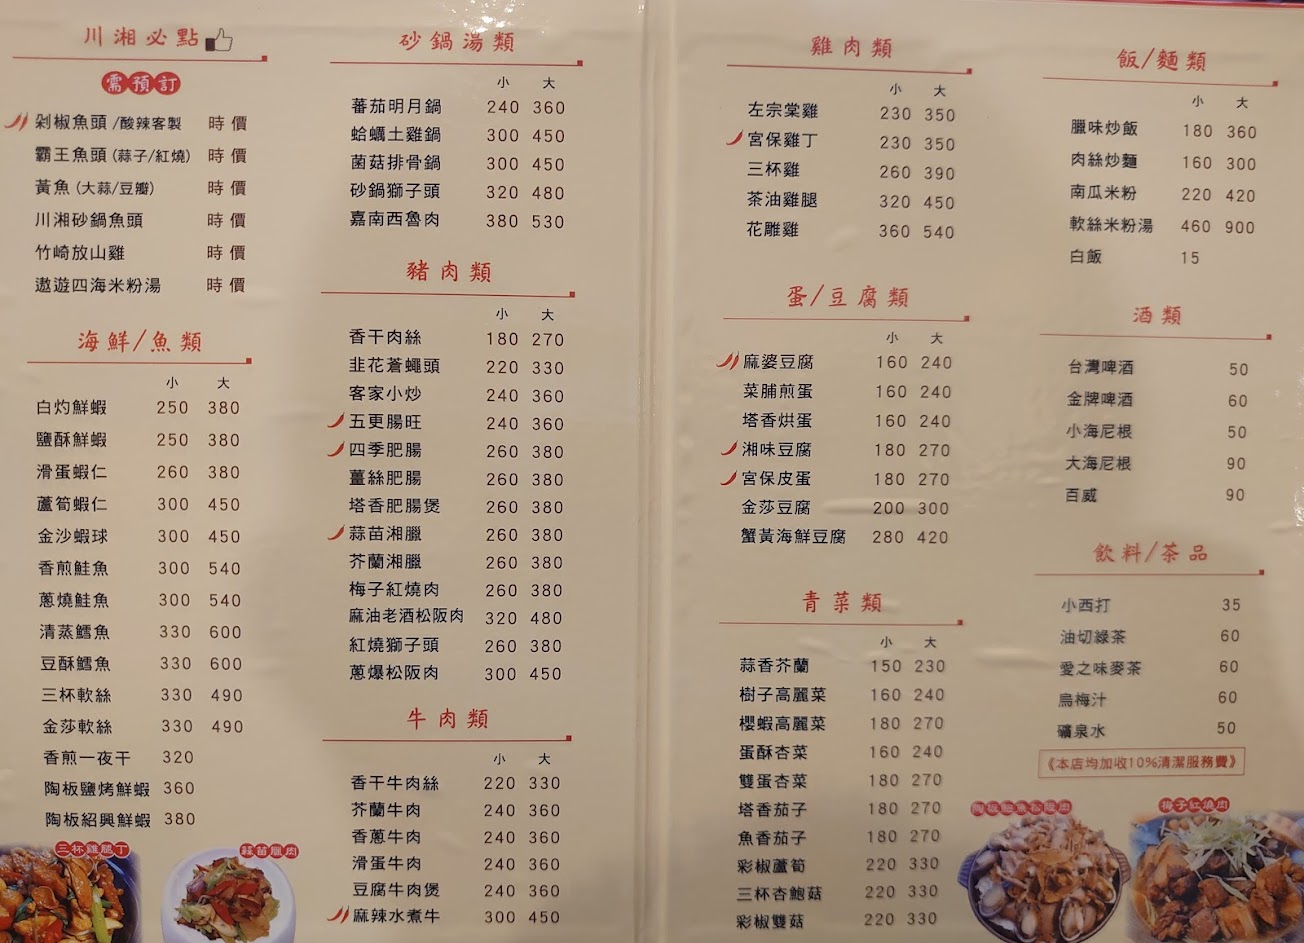 川湘必點
需預訂
剁椒魚頭/酸辣客製 時價
霸王魚頭(蒜子/紅燒) 時價
黃魚(大蒜/豆瓣) 時價
川湘砂鍋魚頭 時價
竹崎放山雞 時價
遨遊四海米粉湯 時價
海鮮/魚類
小 大
白灼鮮蝦 250 380
鹽酥鮮蝦 250 380
滑蛋蝦仁 260 380
蘆筍蝦仁 300 450
金沙蝦球 300 450
香煎鮭魚 300 540
蔥燒鮭魚 300 540
清蒸鱈魚 330 600
豆酥鱈魚 330 600
三杯軟絲 330 490
金莎軟絲 330 490
香煎一夜干 320
陶板鹽烤鮮蝦 360
陶板紹興鮮蝦 380
三杯雞腿丁
蒜苗臘肉
砂鍋湯類
小 大
蕃茄明月鍋 240 360
蛤蠣土雞鍋 300 450
菌菇排骨鍋 300 450
砂鍋獅子頭 320 480
嘉南西魯肉 380 530
豬肉類
小 大
香干肉絲 180 270
韭花蒼蠅頭 220 330
客家小炒 240 360
五更腸旺 240 360
四季肥腸 260 380
薑絲肥腸 260 380
塔香肥腸煲 260 380
蒜苗湘臘 260 380
芥蘭湘臘 260 380
梅子紅燒肉 260 380
麻油老酒松阪肉 320 480
紅燒獅子頭 260 380
蔥爆松阪肉 300 450
牛肉類
小 大
香干牛肉絲 220 330
芥蘭牛肉 240 360
香蔥牛肉 240 360
滑蛋牛肉 240 360
豆腐牛肉煲 240 360
麻辣水煮牛 300 450
雞肉類
小 大
左宗棠雞 230 350
宮保雞丁 230 350
三杯雞 260 390
茶油雞腿 320 450
花雕雞 360 540
蛋/豆腐類
小 大
麻婆豆腐 160 240
菜脯煎蛋 160 240
塔香烘蛋 160 240
湘味豆腐 180 270
宮保皮蛋 180 270
金莎豆腐 200 300
蟹黃海鮮豆腐 280 420
青菜類
小 大
蒜香芥蘭 150 230
樹子高麗菜 160 240
櫻蝦高麗菜 180 270
蛋酥杏菜 160 240
雙蛋杏菜 180 270
塔香茄子 180 270
魚香茄子 180 270
彩椒蘆筍 220 330
三杯杏鮑菇 220 330
彩椒雙菇 220 330
飯/麵類
小 大
臘味炒飯 180 360
肉絲炒麵 160 300
南瓜米粉 220 420
軟絲米粉湯 460 900
白飯 15
酒類
台灣啤酒 50
金牌啤酒 60
小海尼根 50
大海尼根 90
百威 90
飲料/茶品
小西打 35
油切綠茶 60
愛之味麥茶 60
烏梅汁 60
礦泉水 50
《本店均加收10%清潔服務費》
梅子紅燒肉